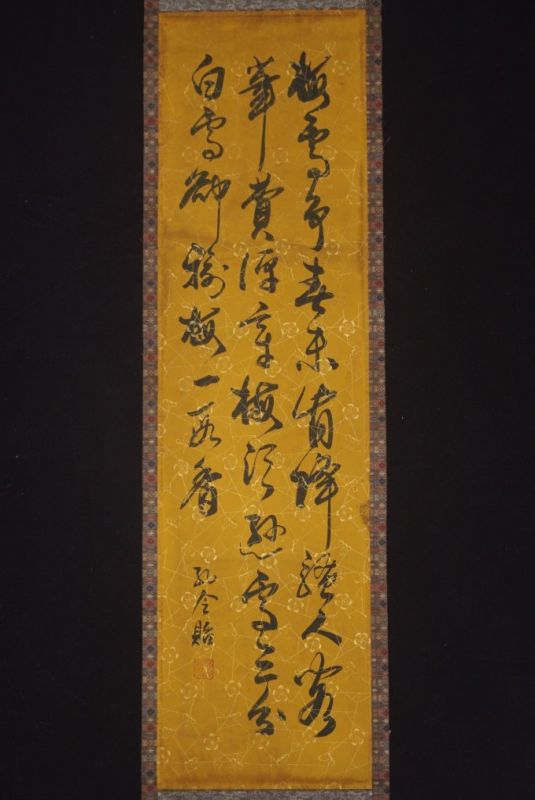 梅雪爭春未肯降騷人閣
筆費評章梅須遜雪三分
白雪卻輸梅一段香
孔令貽